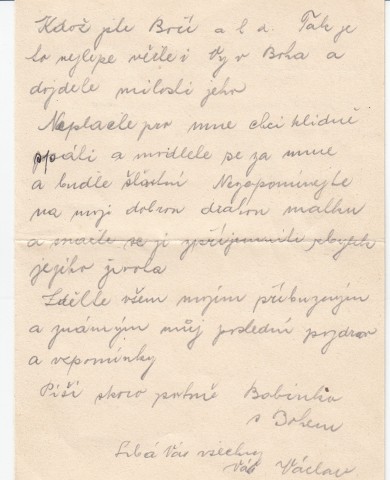 Kdož jste Boží a t d. Tak je
to nejlepe věřte i Vy v Boha a
dojdete milosti jeho
Neplačte pro mne chci klidně
spáti a modlete se za mne
a buďte šťastni Nezapomínejte
na moji dobrou drahou matku
a snažte se ji zpříjemniti zbytek
jejího života
Sdělte všem mojím příbuzným
a známým můj poslední pozdrav
a vzpomínky
Píši skoro potmě Babinko
s Bohem
Líbá Vás všechny
Váš Václav